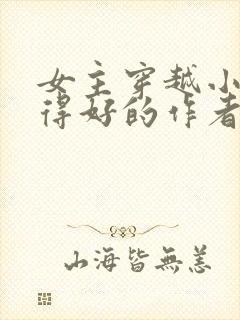 女主穿越小
得好的作者
山海皆無恙